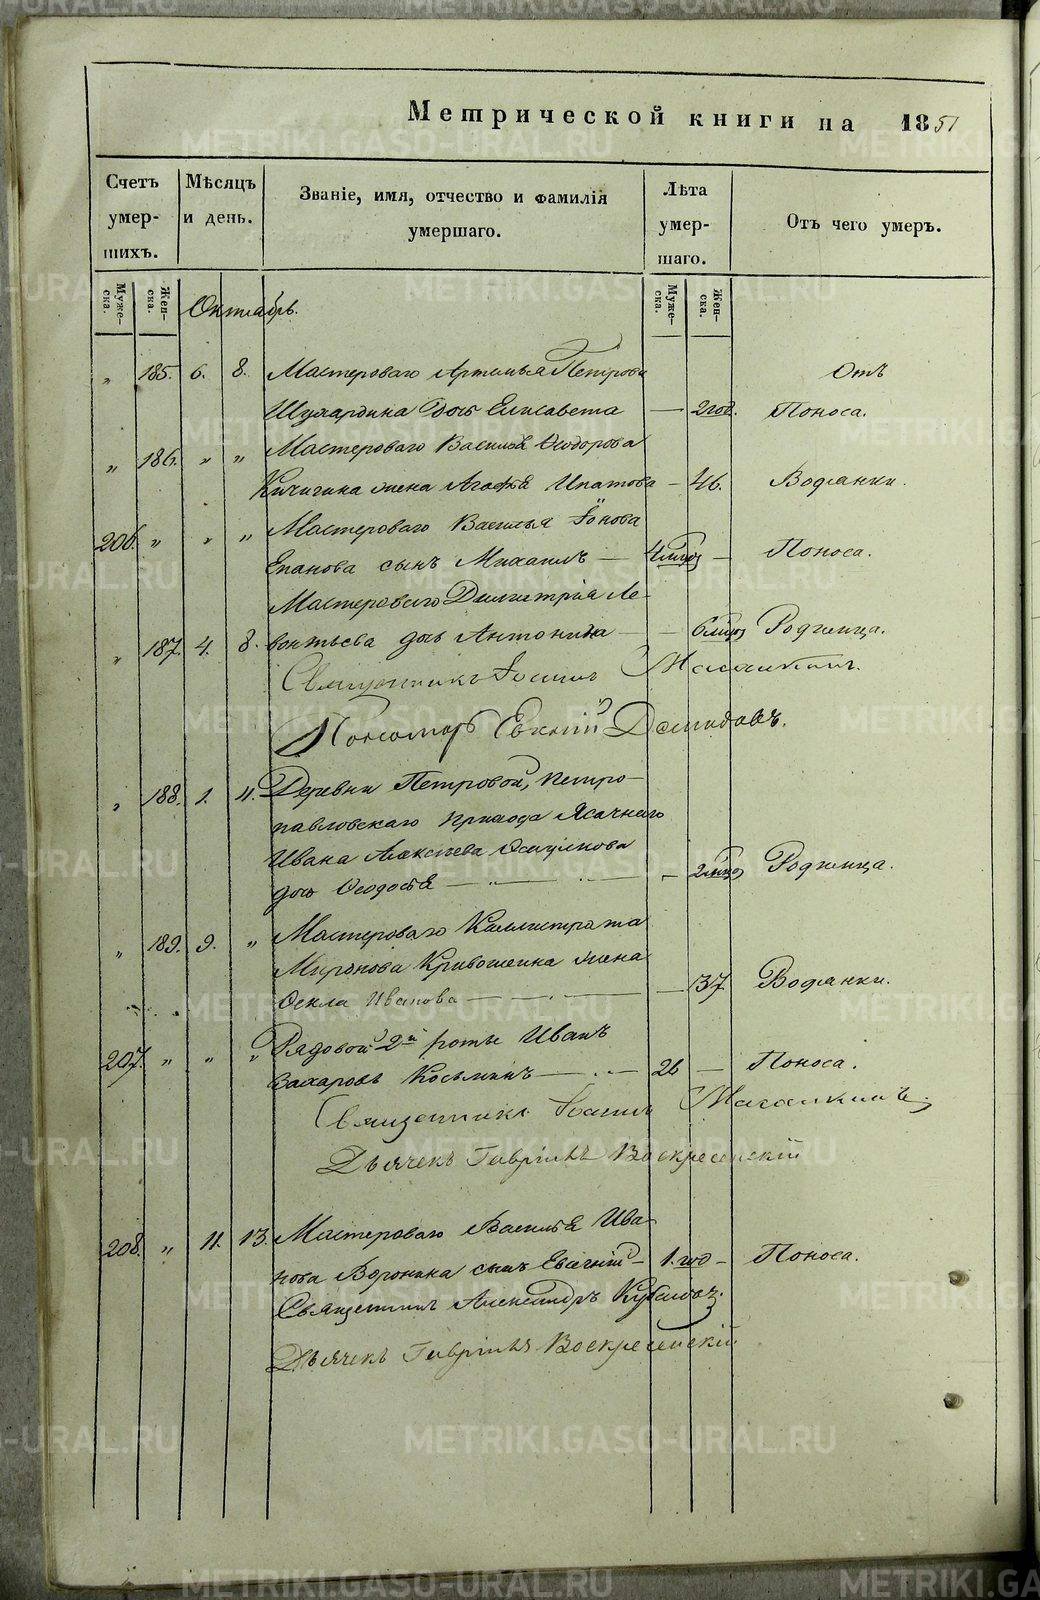 Метрической книги на 1851
Счетъ умершихъ.
Мѣсяцъ и день.
Званіе, имя, отчество и фамилія умершаго.
Лѣта умершаго.
Отъ чего умеръ.
Мужеска. Женска. Октябрь. Мужеска. Женска.
„ 185. 6. 8. Мастероваго Артемья Петрова Отъ
дочь Елисавета — 2 год. Поноса.
„ 186. „ „ Мастероваго Василья Ѳеодорова
Кичигина жена Агафья Ипатова — 46. Водянки.
206. „ „ „ Мастероваго Василья Іонова
Епанова сынъ Михаилъ — 4 мѣс. — Поноса.
Мастероваго Димитрія Ле-
„ 187. 4. 8. вонтьева дочь Антонина — — 6 мѣс. Родимца.
Священникъ Іоаннъ
Пономарь Демидовъ.
„ 188. 2. 4. Деревни Петровой, Петро-
павловскаго прихода Ясачнаго
Ивана Алексѣева
дочь Ѳеодосья — „ — — 2 мѣс. Родимца.
„ 189. 9. „ Мастероваго Каллистрата
Миронова Кривошеина жена
Ѳекла Иванова — — 37. Водянки.
207. „ „ „ Рядовой 2й роты Иванъ
Захаровъ Козьминъ — 26 — Поноса.
Священникъ Іоаннъ
Дьячекъ Гавріилъ Воскресенскій
208. „ 11. 13. Мастероваго Василья Ива-
нова Воронина сынъ Евгеній — 1. год — Поноса.
Священникъ Александръ
Дьячекъ Гавріилъ Воскресенскій
METRIKI.GASO-URAL.RU